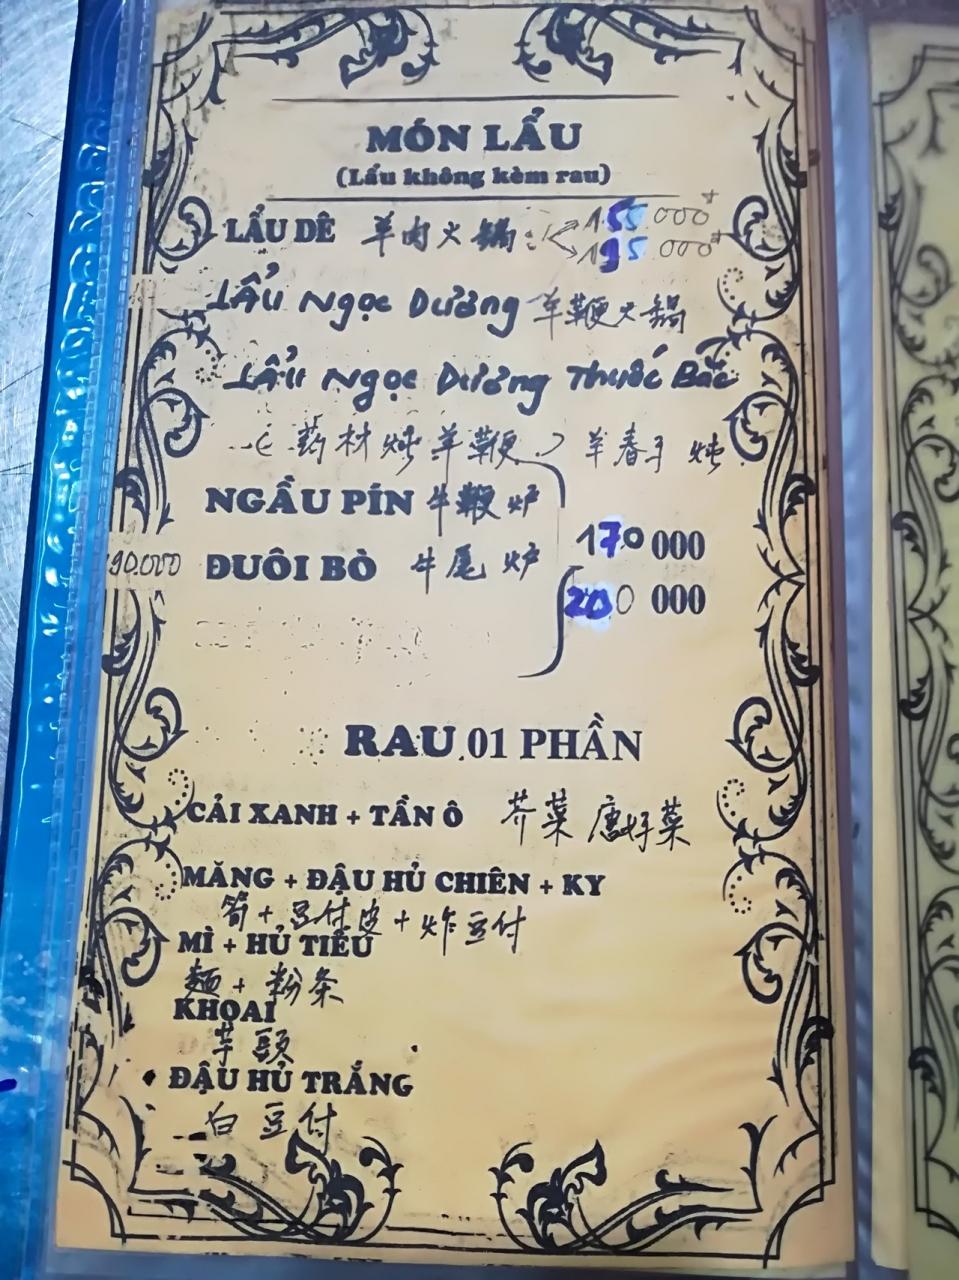 MÓN LẨU
(Lẩu không kèm rau)
LẨU DÊ 羊肉火鍋: 155.000đ
195.000đ
Lẩu Ngọc Dương 羊鞭火鍋
Lẩu Ngọc Dương Thuốc Bắc
(药材炖羊鞭) 羊春子 炖
NGẦU PÍN 牛鞭炉
170 000
90.000 ĐUÔI BÒ 牛尾炉
200 000
RAU 01 PHẦN
CẢI XANH + TẦN Ô 芥菜 唐好菜
MĂNG + ĐẬU HỦ CHIÊN + KY
筍 + 豆付皮 + 炸豆付
MÌ + HỦ TIẾU
麵 + 粉条
KHOAI
芋頭
ĐẬU HỦ TRẮNG
白豆付